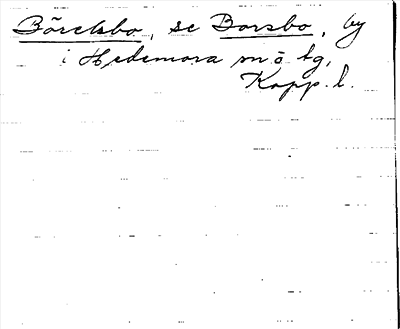 Börcksbo, se Borsbo, by
i Hedemora sn ö tg,
Kopp. l.